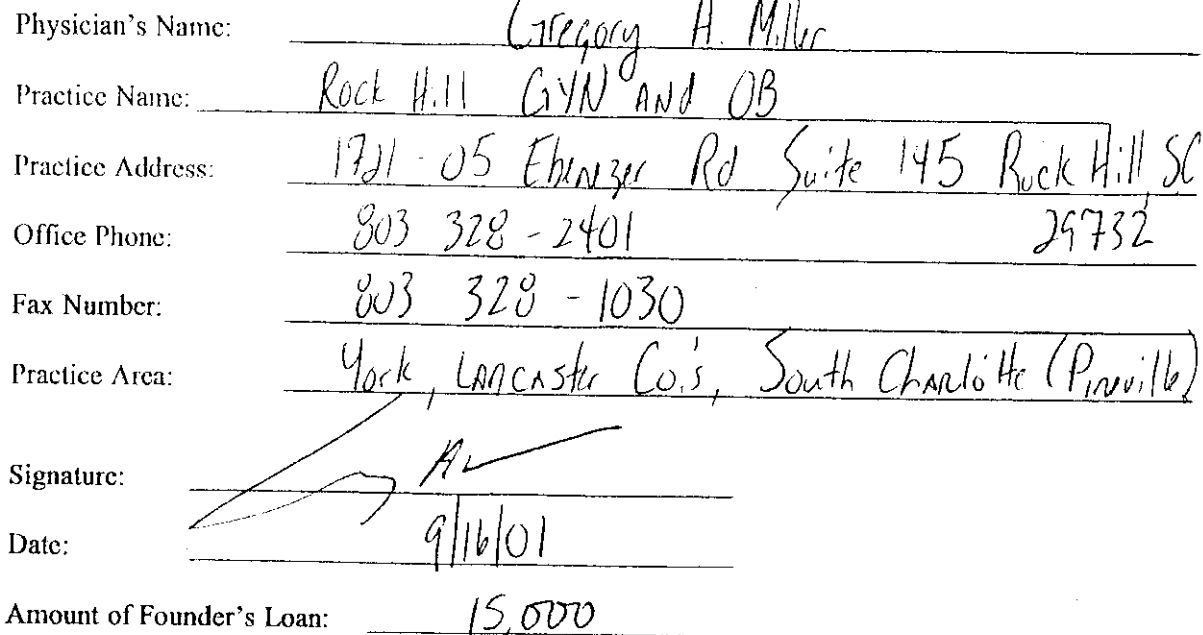 Physician's Name: Gregory A. Miller
Practice Name: Rock Hill GYN AND OB
Practice Address: 1721-05 Ebenezer Rd Suite 145 Rock Hill, SC
Office Phone: 803 328-2401 29732
Fax Number: 803 328-1030
Practice Area: York, Lancaster Co.'s, South Charlotte (Pineville)
Signature:
Date: 9/16/01
Amount of Founder's Loan: 15,000